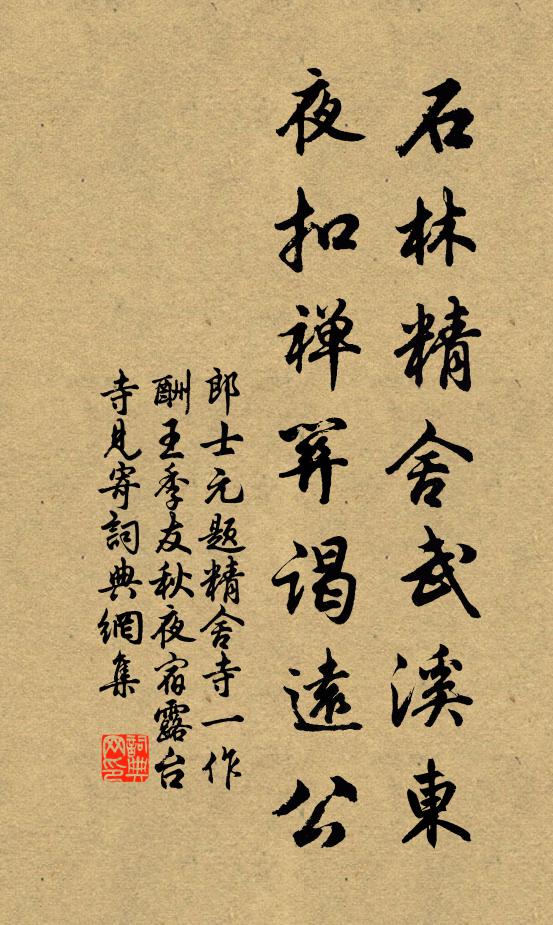 石林精舍武溪東
夜扣禅關謁遠公
郎士元題精舍寺一作
酬王季友秋夜宿露台
寺見寄詞典網集
詞典
网印